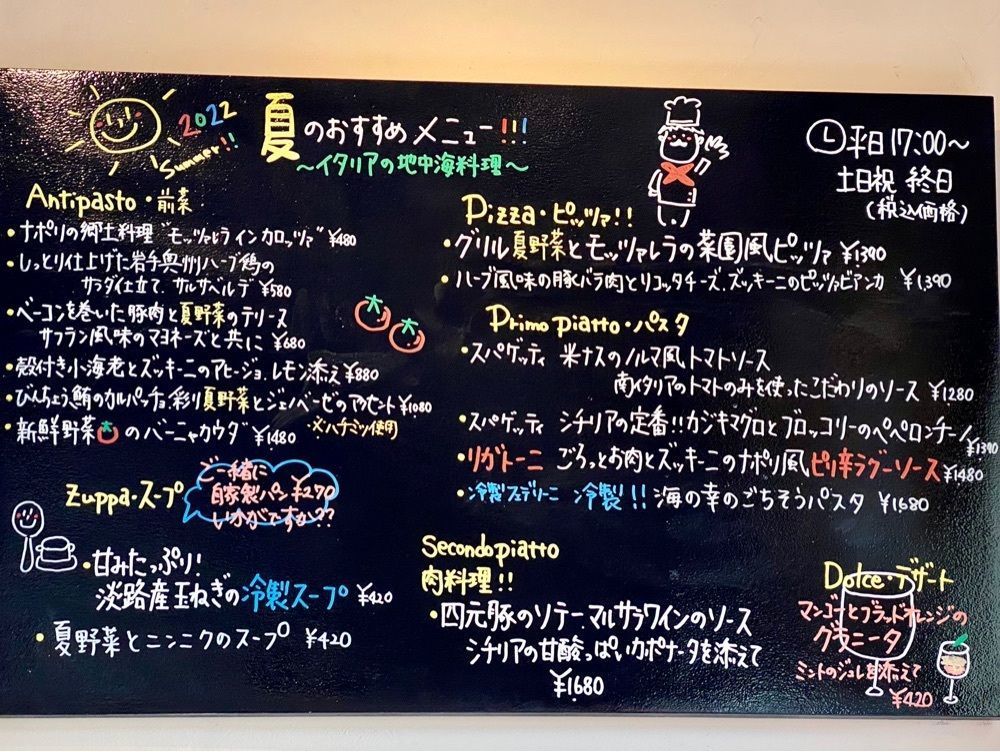 2022
Summer!!
夏のおすすめメニュー!!!
～イタリアの地中海料理～
Ⓛ平日 17:00～
土日祝 終日
(税込価格)
Antipasto・前菜
・ナポリの郷土料理"モッツァレラ イン カロッツァ" ¥480
・しっとり仕上げた岩手奥州ハーブ鶏の
サラダ仕立て、サルサベルデ ¥580
・ベーコンを巻いた豚肉と夏野菜のテリース
サフラン風味のマヨネーズと共に ¥680
・殻付き小海老とズッキーニのアヒージョ、レモン添え ¥880
・びんちょう鮪のカルパッチョ、彩り夏野菜とジェノベーゼのアクセント ¥1080
・新鮮野菜のバーニャカウダ ¥1480 ※ハチミツ使用
Zuppa・スープ
ご一緒に
自家製パン¥270
いかがですか??
・甘みたっぷり!
淡路産玉ねぎの冷製スープ ¥420
・夏野菜とニンニクのスープ ¥420
Pizza・ピッツァ!!
・グリル夏野菜とモッツァレラの菜園風ピッツァ ¥1390
・ハーブ風味の豚バラ肉とリコッタチーズ、ズッキーニのピッツァビアンカ ¥1390
Primo piatto・パスタ
・スパゲッティ 米ナスのノルマ風トマトソース
南イタリアのトマトのみを使ったこだわりのソース ¥1280
・スパゲッティ シチリアの定番!!カジキマグロとブロッコリーのペペロンチーノ ¥1390
・リガトーニ ごろっとお肉とズッキーニのナポリ風ピリ辛ラグーソース ¥1480
・冷製フェデリーニ 冷製!!海の幸のごちそうパスタ ¥1680
Secondo piatto
肉料理!!
・四元豚のソテー、マルサラワインのソース
シチリアの甘酸っぱいカポナータを添えて
¥1680
Dolce・デザート
マンゴーとブラッドオレンジの
グラニータ
ミントのジュレを添えて
¥420